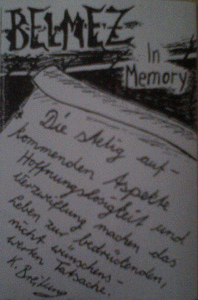 BELMEZ
In
Memory
Die stetig auf-
kommenden Aspekte
Hoffnungslosigkeit und
Verzweiflung machen das
Leben zur bedrückenden,
nicht wünschens-
werten Tatsache.
K.